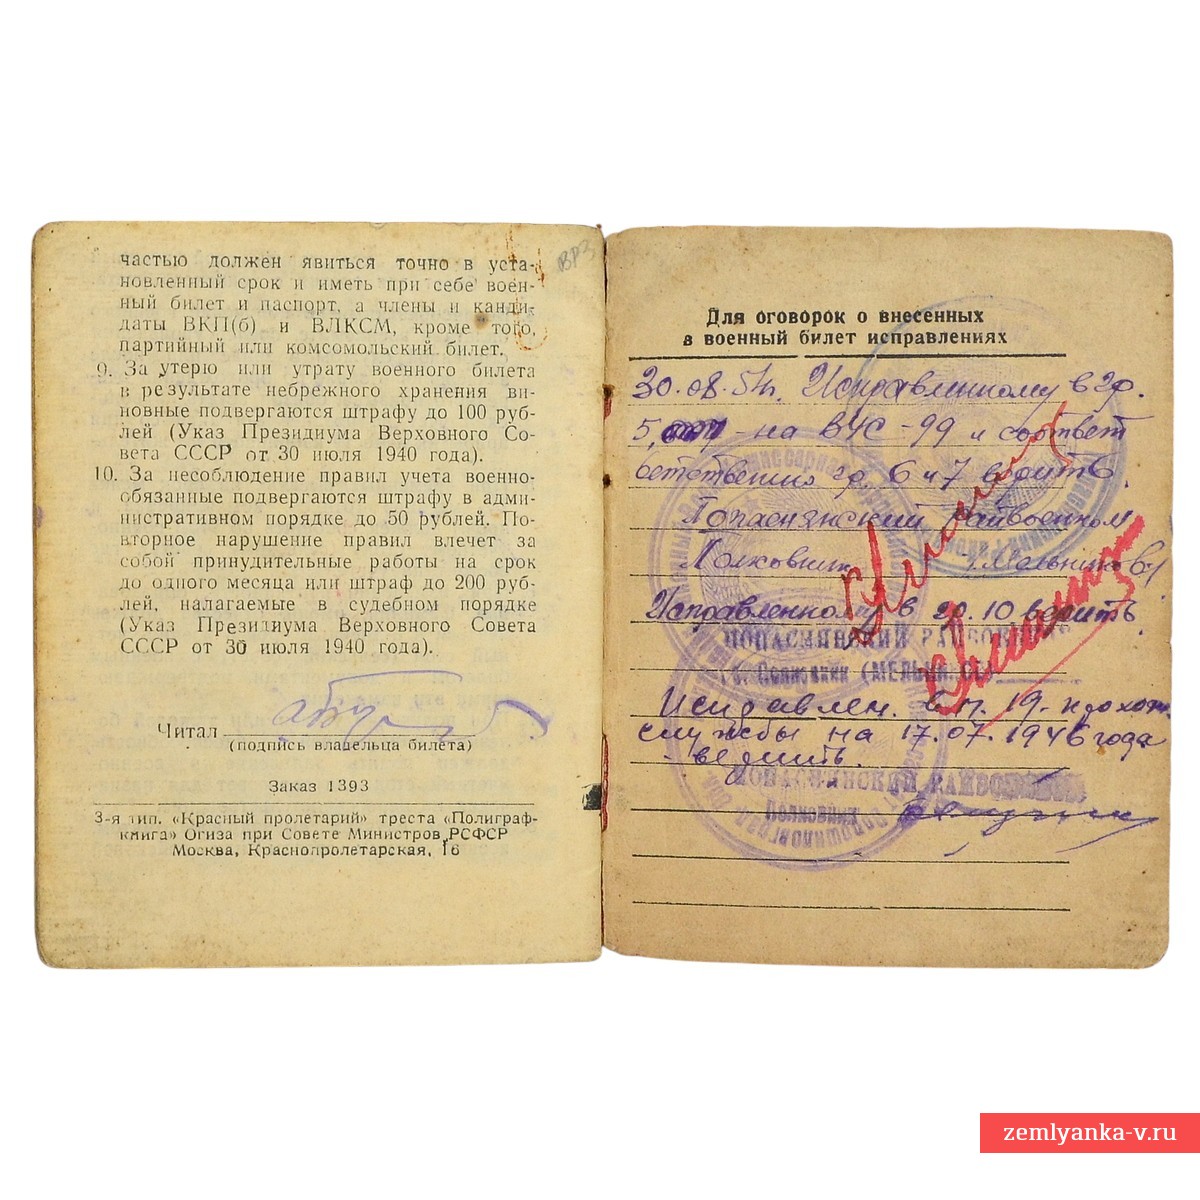 частью должен явиться точно в уста-
новленный срок и иметь при себе воен-
ный билет и паспорт, а члены и канди-
даты ВКП(б) и ВЛКСМ, кроме того,
партийный или комсомольский билет.
9. За утерю или утрату военного билета
в результате небрежного хранения ви-
новные подвергаются штрафу до 100 руб-
лей (Указ Президиума Верховного Со-
вета СССР от 30 июля 1940 года).
10. За несоблюдение правил учета военно-
обязанные подвергаются штрафу в адми-
нистративном порядке до 50 рублей. По-
вторное нарушение правил влечет за
собой принудительные работы на срок
до одного месяца или штраф до 200 руб-
лей, налагаемые в судебном порядке
(Указ Президиума Верховного Совета
СССР от 30 июля 1940 года).
Читал
(подпись владельца билета)
Заказ 1393
3-я тип. «Красный пролетарий» треста «Полиграф-
книга» Огиза при Совете Министров РСФСР
Москва, Краснопролетарская, 16
ВРЗ
Для оговорок о внесенных
в военный билет исправлениях
30.08.57г. Исправленному в гр.
5, на ВУС-99 и соответ
ветственно гр. 6 и 7 верить
Попаснянский Райвоенком
Полковник Мельников
Исправленному в гр. 10 верить
ПОПАСНЯНСКИЙ РАЙВОЕНКОМ
Полковник (МЕЛЬНИКОВ)
Исправлен. в п. 19 - прохож.
службы на 17.07.1946 года
- верить.
ПОПАСНЯНСКИЙ РАЙВОЕНКОМ
Полковник
zemlyanka-v.ru